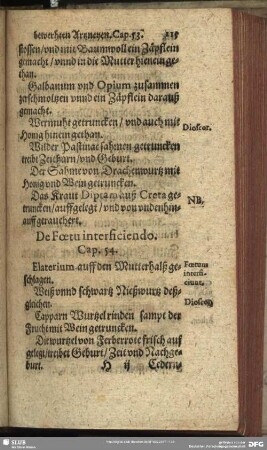 bewerheen Artzneyen. Cap. 53. 239
stossen/vnd mit Baumwoll ein Zäpflein
gemacht/vnnd in die Mutter hienein ge-
than.
Galbanum vnd Opium zusammen
zerschmoltzen vnnd ein Zäpflein darauß
gemacht.
Wermuht getruncken/vnd auch mit
Honig hinein gethan. Dioscor.
Wilder Pastinac sahmen getruncken
treibt Zeit harn/vnd Geburt.
Der Sahme von Drachenwurtz mit
Honig vnd Wein getruncken.
Das Kraut Diptam auß Creta ge-
truncken/auffgelegt/vnd von vnden hin- NB.
auff gereuchert.
De Fœtu interficiendo.
Cap. 54.
Elaterium auff den Mutterhalß ge- Fœtum
schlagen. interfi-
Weiß vnnd schwartz Nießwurtz deß- ciunt.
gleichen. Dioscor.
Cappern Wurtzel rinden sampt der
Frucht mit Wein getruncken.
Die wurtzel von Ferberröte frisch auff
gelegt/treibet Geburt/Zeit vnd Nachge-
burt. H ij Cedern
SLUB
DFG